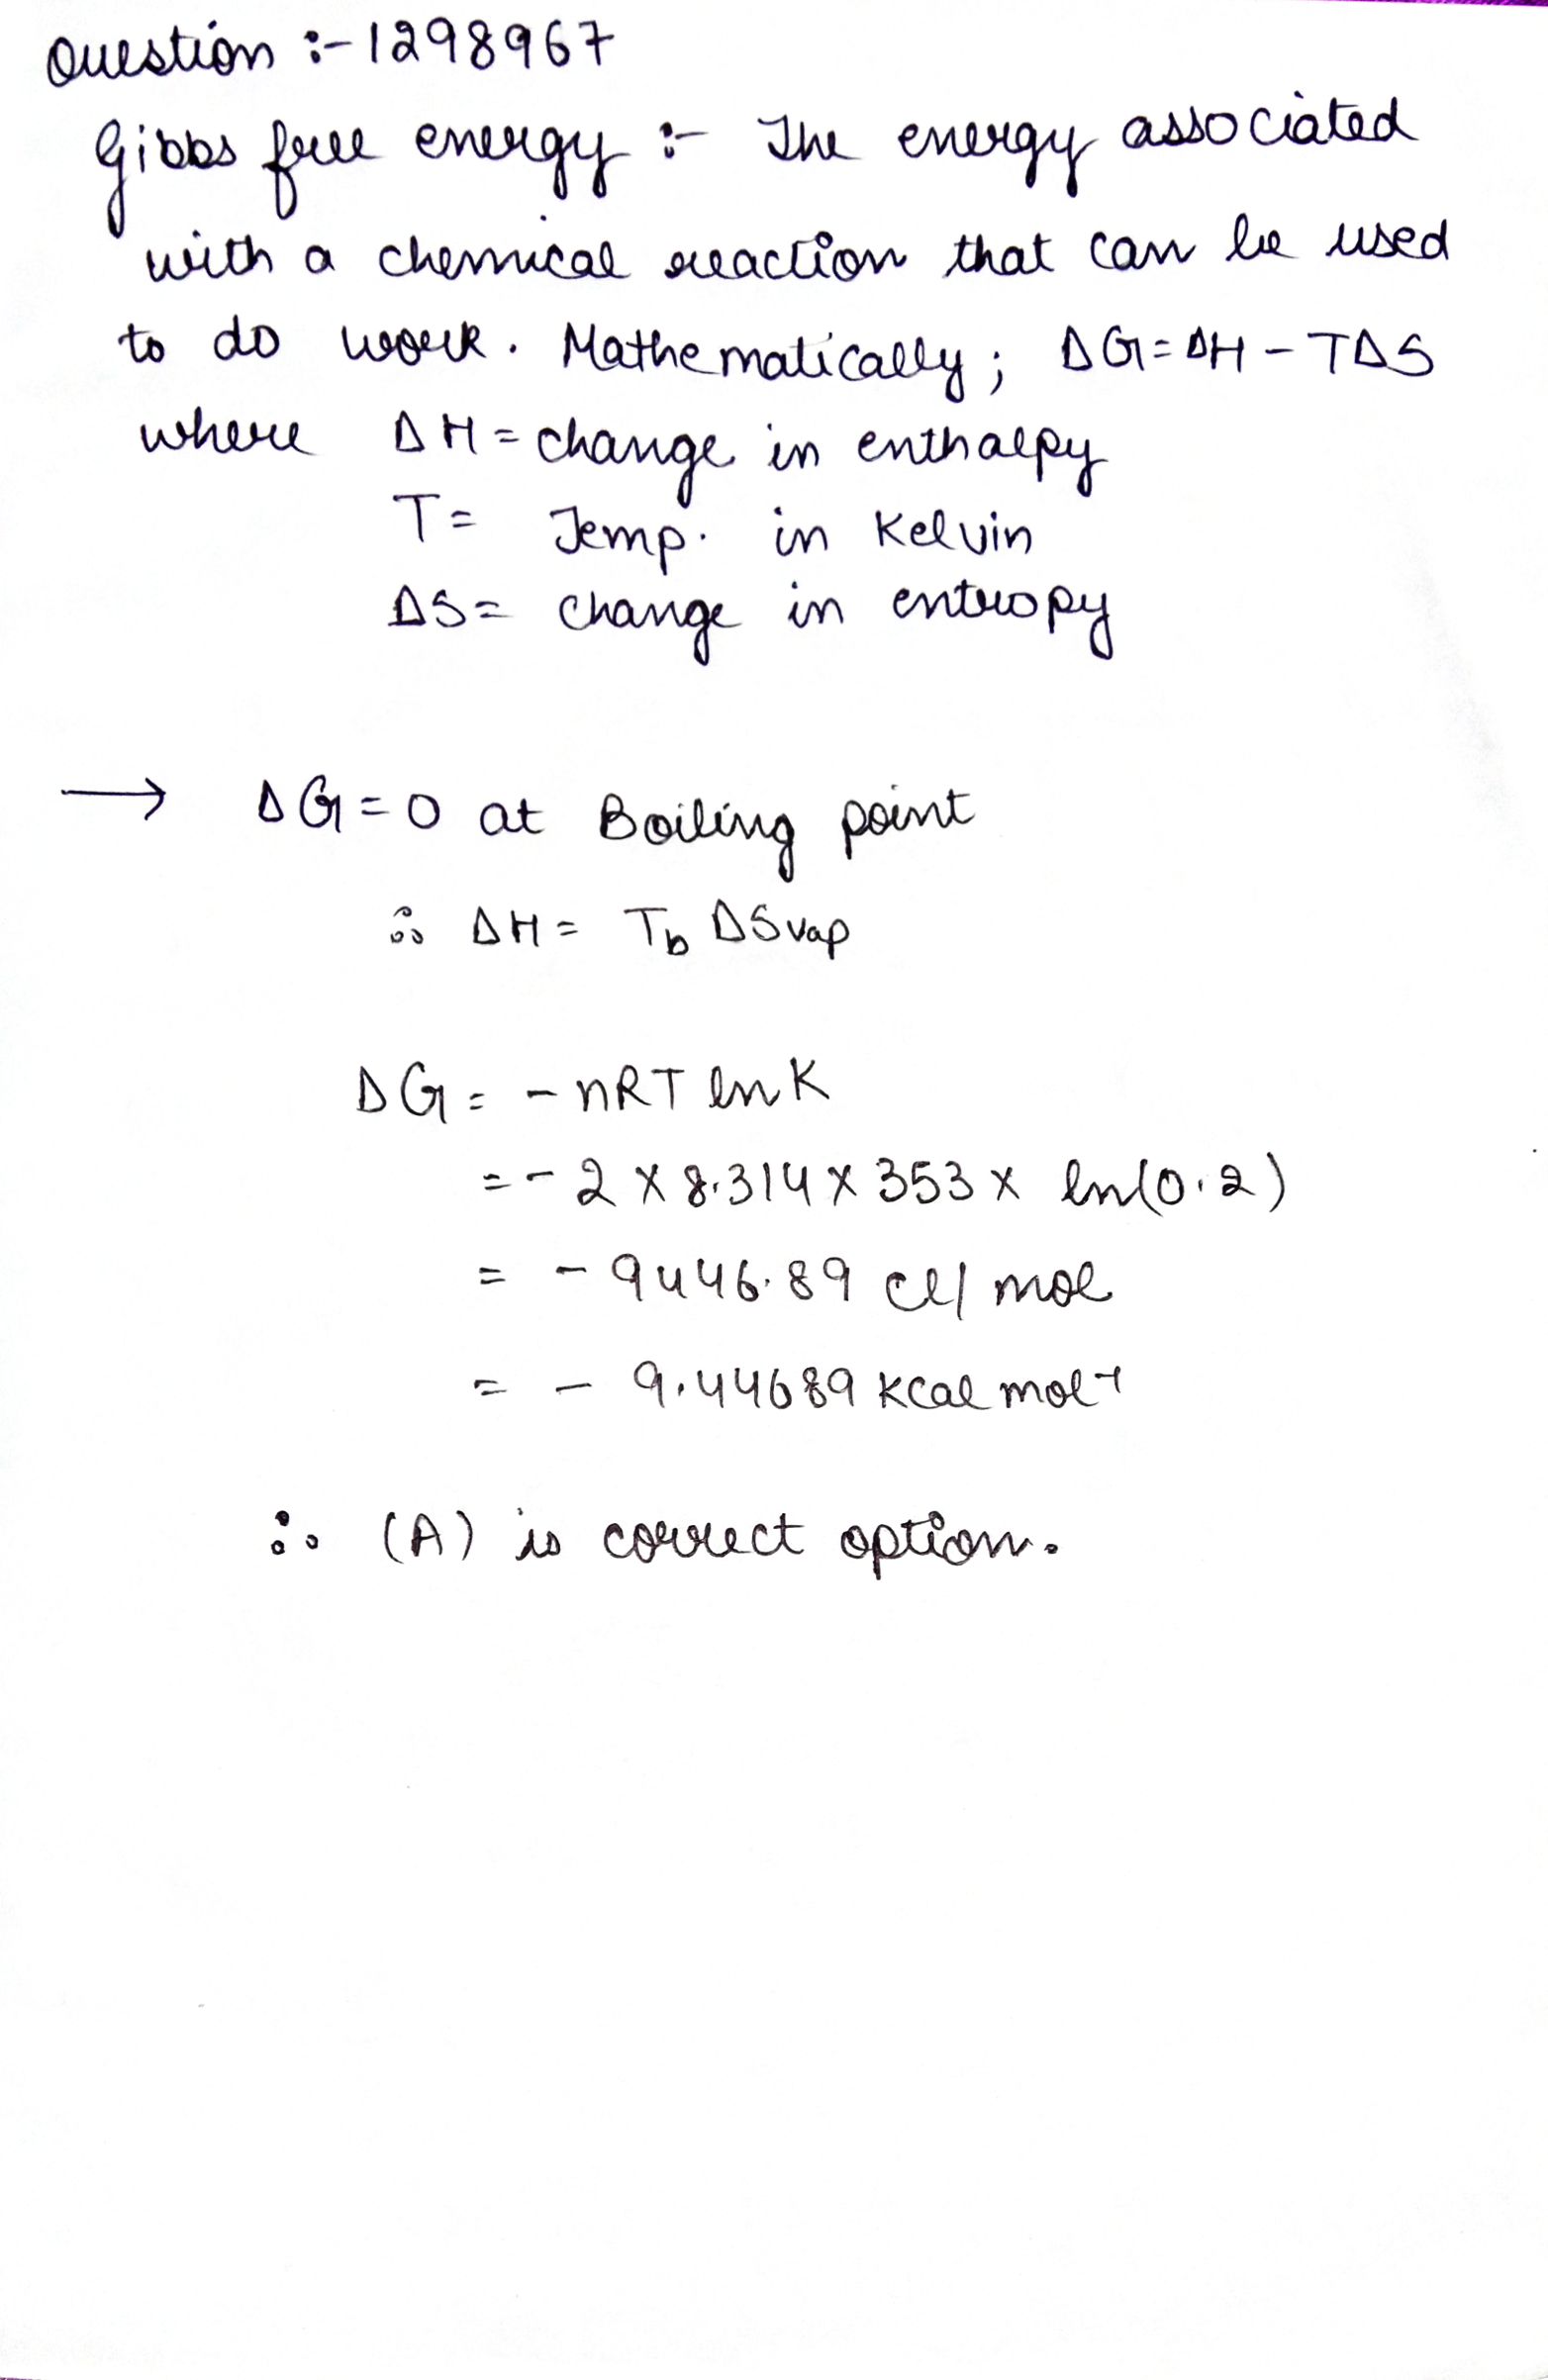 Question :- 1298967
Gibbs free energy :- The energy associated
with a chemical reaction that can be used
to do work. Mathematically; ΔG = ΔH - TΔS
where ΔH = change in enthalpy
T = Temp. in Kelvin
ΔS = change in entropy
→ ΔG = 0 at Boiling point
∴ ΔH = Tb ΔSvap
ΔG = - nRT lnK
= - 2 x 8.314 x 353 x ln(0.2)
= - 9446.89 cl/mol
= - 9.44689 kcal mol-1
∴ (A) is correct option.